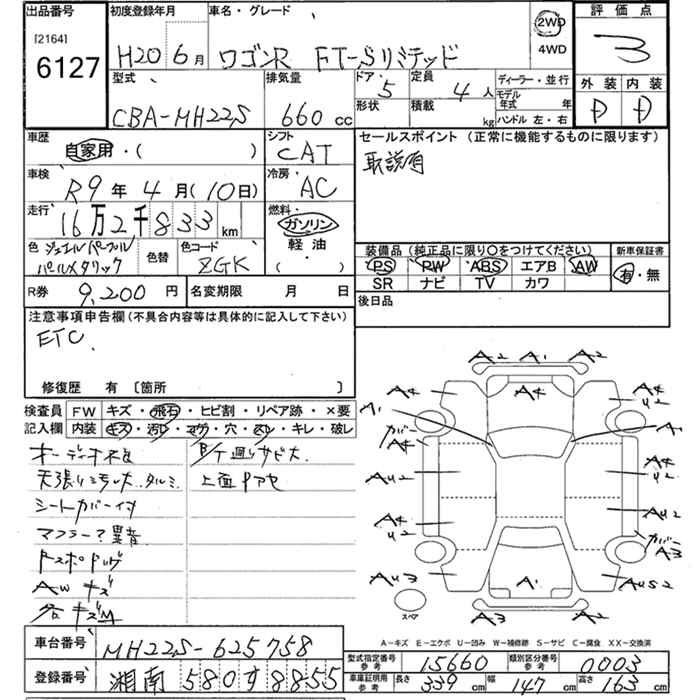 出品番号
[2164]
6127
初度登録年月
H20 6月
車名・グレード
ワゴンR FT-Sリミテッド
2WD
4WD
評価点
3
型式
CBA-MH22S
排気量
660 cc
ドア・
5
形状
定員
4 人
積載
kg
ディーラー・並行
モデル年式 年
ハンドル 左・右
外装 内装
D D
車歴
自家用・( )
シフト
CAT
車検
R9年4月(10日)
冷房・
AC
走行
16万2千833 km
燃料・
ガソリン
軽油
( )
色 ジュエルパープル
パールメタリック
色替
色コード
ZGK
R券 9,200 円
名変期限 月 日
セールスポイント (正常に機能するものに限ります)
取説有
装備品(純正品に限り○をつけてください)
PS PW ABS エアB AW
SR ナビ TV カワ
新車保証書
有・無
後日品
注意事項申告欄(不具合内容等は具体的に記入して下さい)
ETC.
修復歴 有 〔箇所 〕
検査員記入欄
FW キズ・飛石・ヒビ割・リペア跡・×要
内装 キズ・汚レ・コゲ・穴・スレ・キレ・破レ
オーディオ不良
天張り汚レ大.タルミ
シートカバー付
マフラー?異音
AW キズ
各キズM
下廻りサビ大
A2 A1 A2
A4 A4 A4
U2
カバー
A4
A1
AU2 AU2
A4
U2
AU2
カバー
A3
AU3 A1 AUS2
A2 A2
スペア
A-キズ E-エクボ U-凹み W-補修跡 S-サビ C-腐食 XX-交換済
車台番号 MH22S-625758
登録番号 湘南 580 す 8855
型式指定番号
参考
15660
類別区分番号
参考
0003
車庫証明用
参考
長さ 339 cm
幅 147 cm
高さ 163 cm